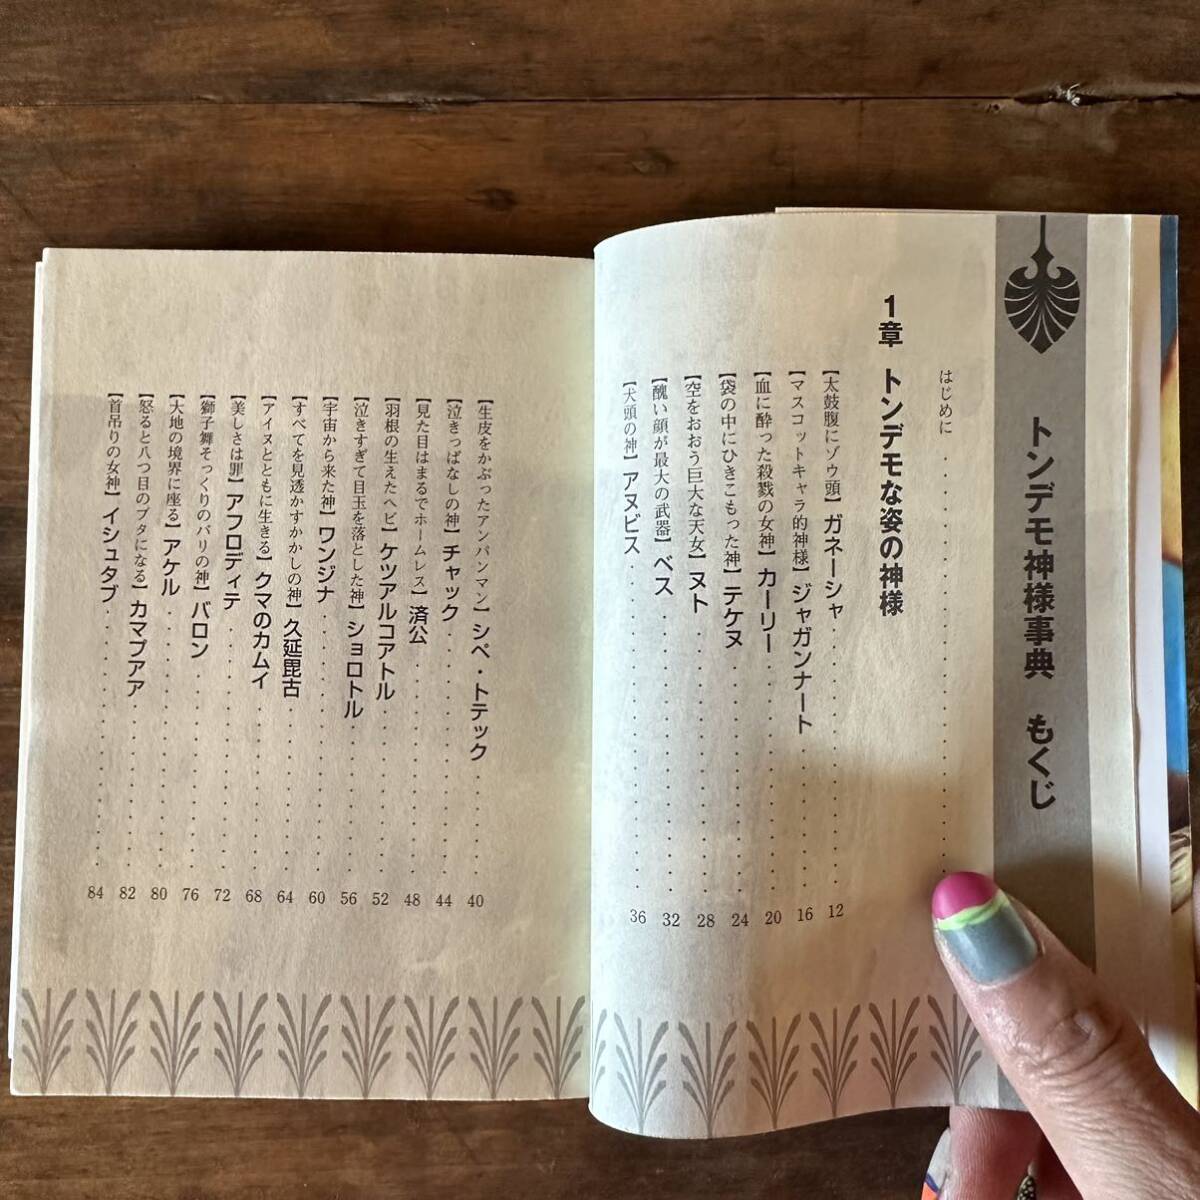 トンデモ神様事典　もくじ
はじめに
1章　トンデモな姿の神様
【太鼓腹にゾウ頭】ガネーシャ 12
【マスコットキャラ的神様】ジャガンナート 16
【血に酔った殺戮の女神】カーリー 20
【袋の中にひきこもった神】テケヌ 24
【空をおおう巨大な天女】ヌト 28
【醜い顔が最大の武器】ベス 32
【犬頭の神】アヌビス 36
【生皮をかぶったアンパンマン】シペ・トテック 40
【泣きっぱなしの神】チャック 44
【見た目はまるでホームレス】済公 48
【羽根の生えたヘビ】ケツアルコアトル 52
【泣きすぎて目玉を落とした神】ショロトル 56
【宇宙から来た神】ワンジナ 60
【すべてを見透かすかかしの神】久延毘古 64
【アイヌとともに生きる】クマのカムイ 68
【美しさは罪】アフロディテ 72
【獅子舞そっくりのバリの神】バロン 76
【大地の境界に座る】アケル 80
【怒ると八つ目のブタになる】カマプアア 82
【首吊りの女神】イシュタブ 84